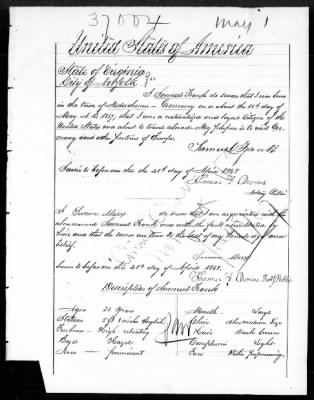 37004 May 1
United States of America
State of Virginia
City of Norfolk } ss
I Samuel Frank do swear that I was born
in the town of
Germany on or about the 10th day
of May A.D. 1837, that I am a naturalized and loyal Citizen of the
United States and about to travel abroad. My is to visit Ger-
many and other portions of Europe.
Samuel Frank
Sworn to before me this 28th day of April 1868
Thomas F. Owens
Notary Public
I Simon Marx do swear that I am acquainted with the
above named Samuel Frank and with the facts stated by
him and that the same are true to the best of my knowledge and
belief.
Simon Marx
Sworn to before me this 28th day of April 1868.
Thomas F. Owens Not. Public
Description of Samuel Frank
Age 31 Years
Mouth Large
Stature 5 ft English
Chin Size
Forehead High
Hair Dark Brown
Eyes Hazel
Complexion Light
Nose prominent
Face